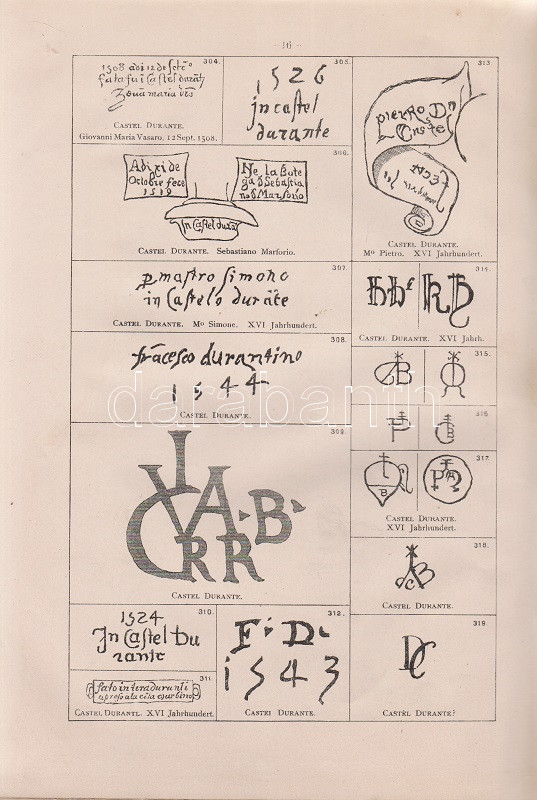 - 16 -
304.
1508 adi 12 de setēo
fata fu i Castel durāt
Zouā maria vrō
CASTEL DURANTE.
Giovanni Maria Vasaro. 12 Sept. 1508.
305.
1526
in castel
durante
306.
Adi xi de
Octobre fece
1519
Ne la Bote
ga d Sebastia
no d Marforio
In Castel durā
CASTEL DURANTE. Sebastiano Marforio.
307.
p mastro simono
in Castelo durāte
CASTEL DURANTE. Mo Simone. XVI Jahrhundert.
308.
frācesco durantino
1544
CASTEL DURANTE.
309.
CASTEL DURANTE.
310.
1524
In Castel Du
rante
311.
fato in terra duranti
CASTEL DURANTE. XVI Jahrhundert.
312.
F. D.
1543
CASTEL DURANTE.
313.
pietro
Castel
CASTEL DURANTE.
Mo Pietro. XVI Jahrhundert.
314.
CASTEL DURANTE. XVI Jahrh.
315.
316.
317.
CASTEL DURANTE.
XVI Jahrhundert.
318.
CASTEL DURANTE.
319.
CASTEL DURANTE?
darabanth